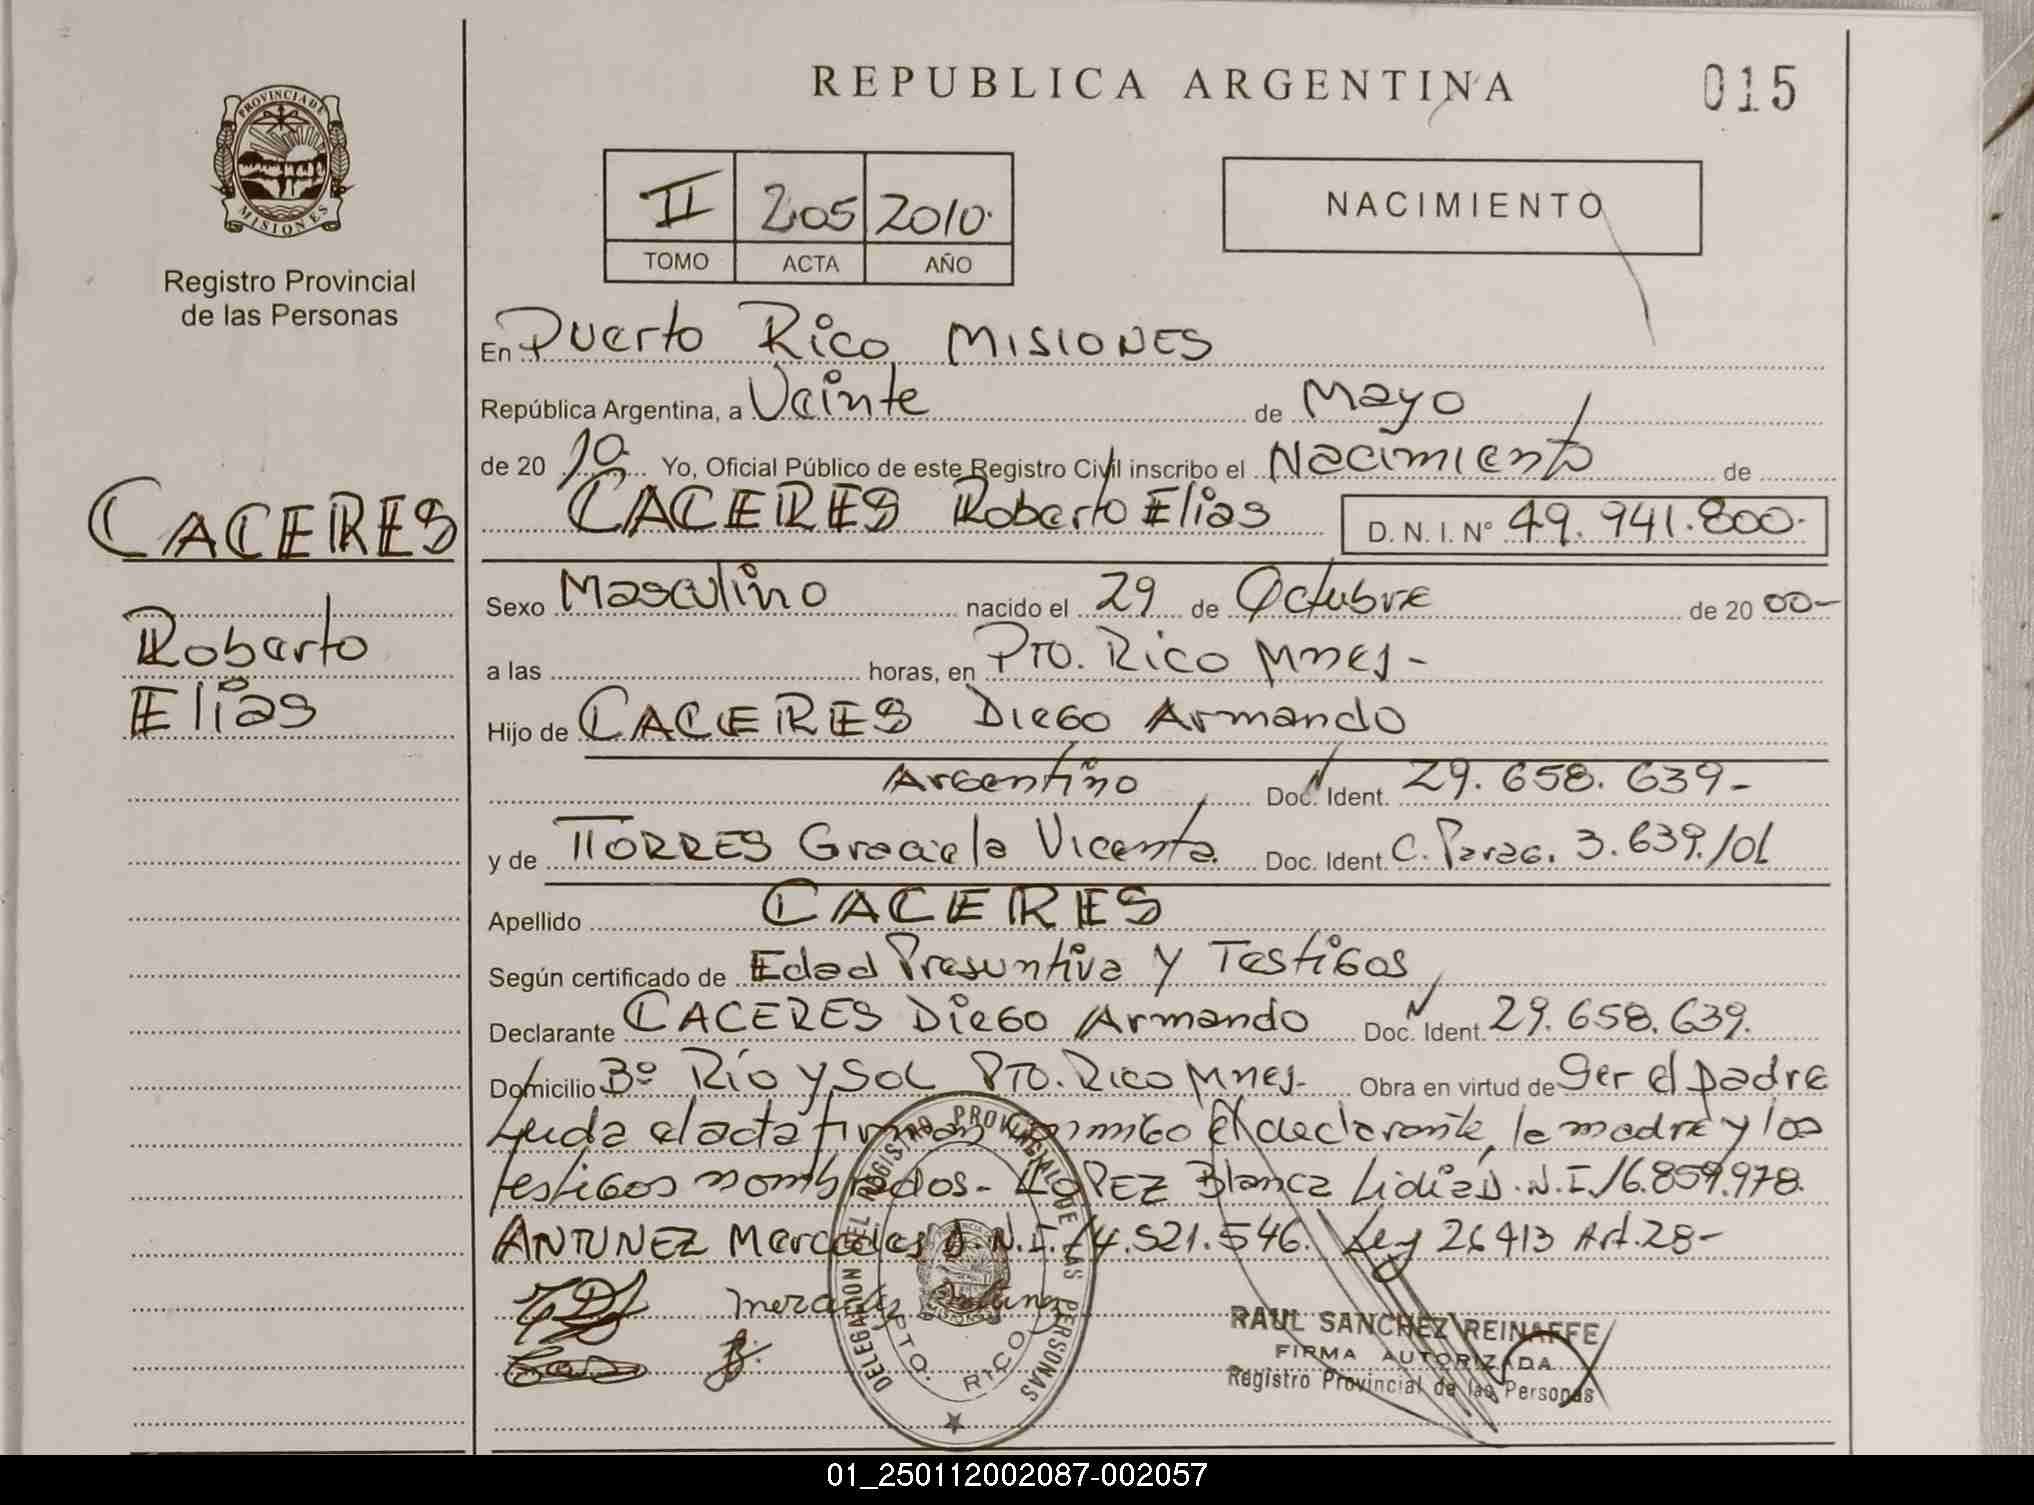 REPUBLICA ARGENTINA
015
PROVINCIA DE
MISIONES
Registro Provincial
de las Personas
II 205 2010.
TOMO ACTA AÑO
NACIMIENTO
En Puerto Rico MISIONES
República Argentina, a Veinte de Mayo
de 20 10 Yo, Oficial Público de este Registro Civil inscribo el Nacimiento de
CACERES Roberto Elias D. N. I. Nº 49.941.800.
CACERES
Roberto
Elias
Sexo Masculino nacido el 29 de Octubre de 20 00-
a las horas, en Pto. Rico Mnes-
Hijo de CACERES Diego Armando
Argentino Doc. Ident. 29.658.639-
y de TORRES Graciela Vicenta Doc. Ident. C. Parag. 3.639./01
Apellido CACERES
Según certificado de Edad Presuntiva y Testigos
Declarante CACERES Diego Armando Doc. Ident. 29.658.639.
Domicilio Bº Río y Sol Pto. Rico Mnes- Obra en virtud de Ser el padre
Leida el acta firman conmigo el declarante, la madre y los
testigos nombrados- LOPEZ Blanca Lidia D.N.I. 16.859.978.
ANTUNEZ Mercedes D.N.I. 14.521.546. Ley 26413 Art. 28-
DELEGACION DEL REGISTRO PROVINCIAL DE LAS PERSONAS
PTO. RICO
RAUL SANCHEZ REINAFFE
FIRMA AUTORIZADA
Registro Provincial de las Personas
01_250112002087-002057